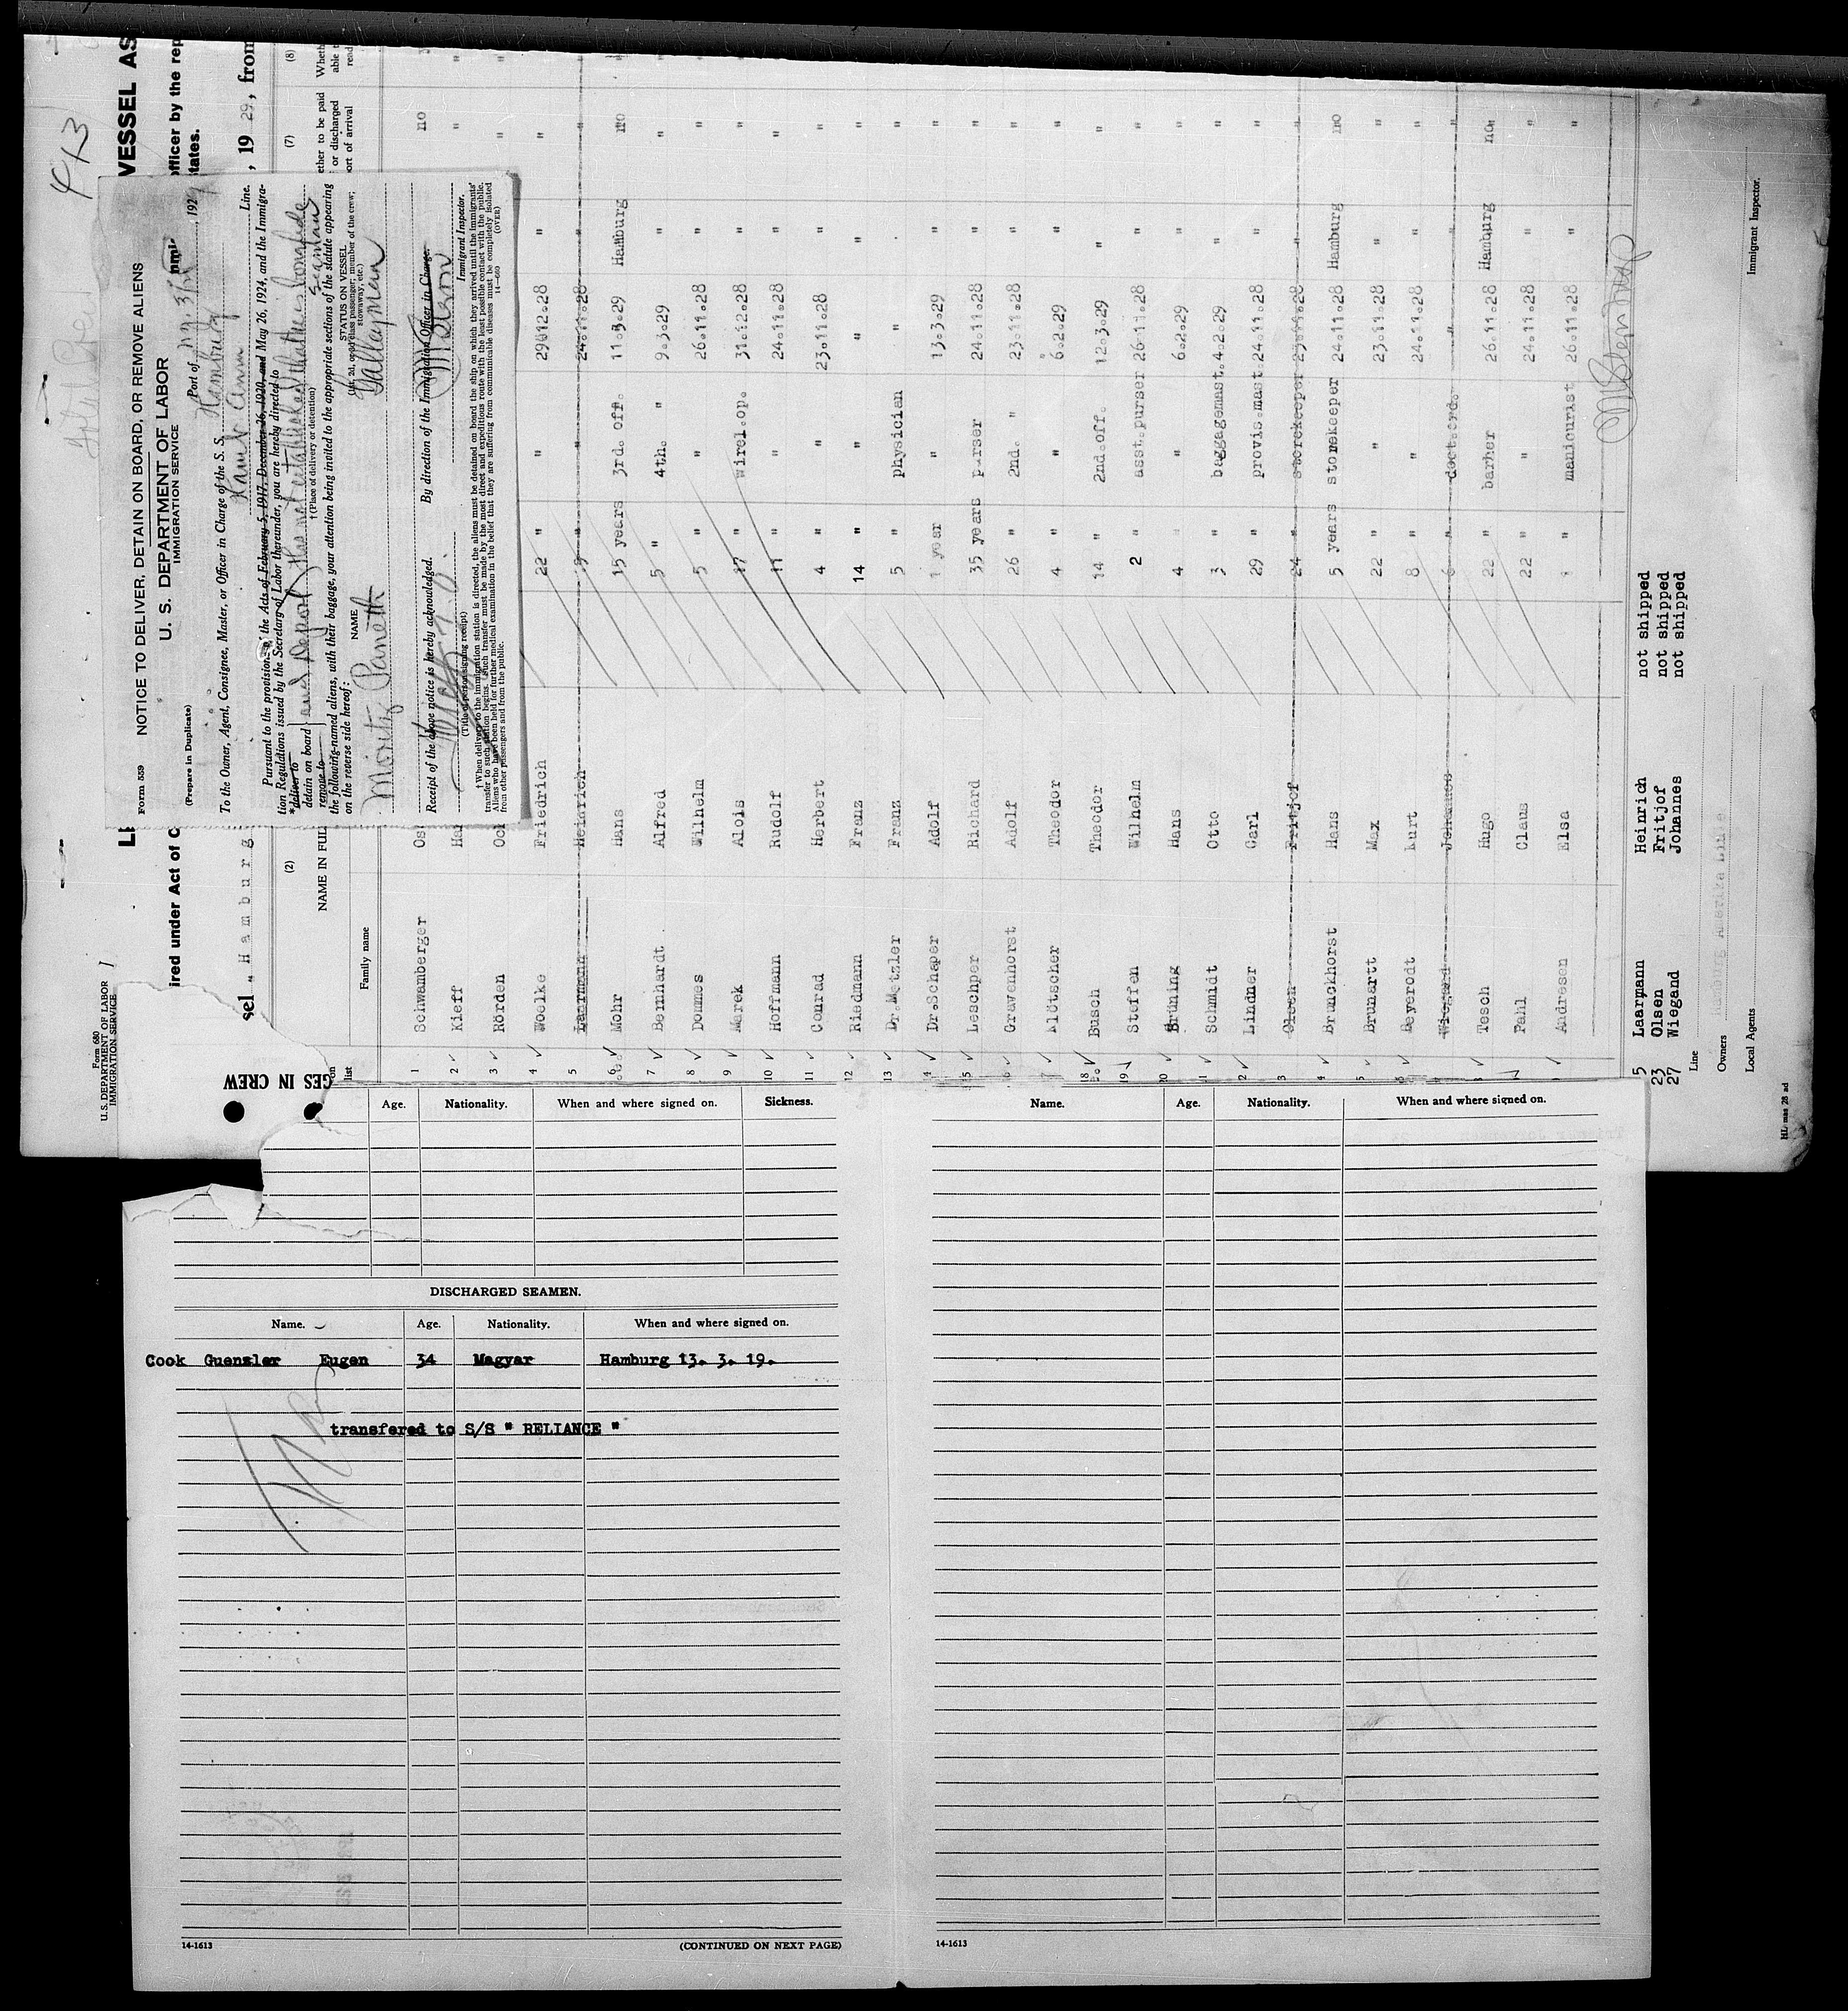 4/3
Form 680
U.S. DEPARTMENT OF LABOR
IMMIGRATION SERVICE
VESSEL AS
ired under Act of C
officer by the rep
tates.
sel " Hamburg
, 19 29, from
(2)
(7)
(8)
NAME IN FULL
ether to be paid
or discharged
ort of arrival
Family name
on
list
Form 559 NOTICE TO DELIVER, DETAIN ON BOARD, OR REMOVE ALIENS
U. S. DEPARTMENT OF LABOR
IMMIGRATION SERVICE
(Prepare in Duplicate)
Port of N.Y. 3/25, 1929
To the Owner, Agent, Consignee, Master, or Officer in Charge of the S. S. Hamburg
Hamb Amn Line.
Pursuant to the provisions of the Acts of February 5, 1917, December 26, 1920, and May 26, 1924, and the Immigra-
tion Regulations issued by the Secretary of Labor thereunder, you are hereby directed to
*deliver to
detain on board and deport has not established that he is bonafide
remove to seaman
†(Place of delivery or detention)
the following-named aliens, with their baggage, your attention being invited to the appropriate sections of the statute appearing
on the reverse side hereof:
NAME STATUS ON VESSEL
(1st, 2d, or 3d class passenger, member of the crew,
stowaway, etc.)
Moritz Paneth Galleyman
Receipt of the above notice is hereby acknowledged. By direction of the Immigration Officer in Charge.
(Title of person signing receipt) Immigrant Inspector.
†When delivery to the immigration station is directed, the aliens must be detained on board the ship on which they arrived until the immigrants'
transfer to such station begins. Such transfer must be made by the most direct and expeditious route with the least possible contact with the public.
Aliens who have been held for further medical examination in the belief that they are suffering from communicable diseases must be completely isolated
from other passengers and from the public. 14—660 (OVER)
1 Schwamberger Os no
2 Kieff Ha "
3 Rörden Oc "
4 Woelke Friedrich 22 " " 29.12.28 " "
5 Laarmann Heinrich 5 " " 24.11.28 " "
6 Mohr Hans 15 years 3rd. off. 11.3.29 Hamburg no
7 Bernhardt Alfred 5 " 4th. " 9.3.29 " "
8 Dommes Wilhelm 5 " " 26.11.28 " "
9 Marek Alois 17 " wirel.op. 31.12.28 " "
10 Hoffmann Rudolf 11 " " 24.11.28 " "
11 Conrad Herbert 4 " " 23.11.28 " "
12 Riedmann Franz 14 " " " " "
13 Dr.Metzler Franz 5 " physician " "
14 Dr.Schaper Adolf 1 year " 13.3.29 " "
15 Leschper Richard 35 years purser 24.11.28 " "
16 Gravenhorst Adolf 26 " 2nd. " 23.11.28 " "
17 Klötscher Theodor 4 " " 6.2.29 " "
18 Busch Theodor 14 " 2nd.off. 12.3.29 " "
19 Steffen Wilhelm 2 " asst.purser 26.11.28 " "
20 Brüning Hans 4 " " 6.2.29 " "
1 Schmidt Otto 3 " baggagemast. 4.2.29 " "
2 Lindner Carl 29 " provis.mast. 24.11.28 " "
3 Olsen Fritjof 24 " storekeeper 23.11.28 " "
4 Brunckhorst Hans 5 years storekeeper 24.11.28 Hamburg no
5 Brunartt Max 22 " " 23.11.28 " "
6 Beyerodt Kurt 8 " " 24.11.28 " "
Wiegand Johannes 6 " doct.oyd. " " "
8 Tesch Hugo 22 " barber 26.11.28 Hamburg no
Pahl Claus 22 " " 24.11.28 " "
Andresen Elsa 1 " manicurist 26.11.28 " "
5 Laarmann Heinrich not shipped
23 Olsen Fritjof not shipped
27 Wiegand Johannes not shipped
Line
Owners Hamburg Amerika Linie
Local Agents
Immigrant Inspector.
GES IN CREW
Age. Nationality. When and where signed on. Sickness.
DISCHARGED SEAMEN.
Name. Age. Nationality. When and where signed on.
Cook Guensler Eugen 34 Magyar Hamburg 13. 3. 19.
transfered to S/S " RELIANCE "
14-1613 (CONTINUED ON NEXT PAGE)
Name. Age. Nationality. When and where signed on.
14-1613